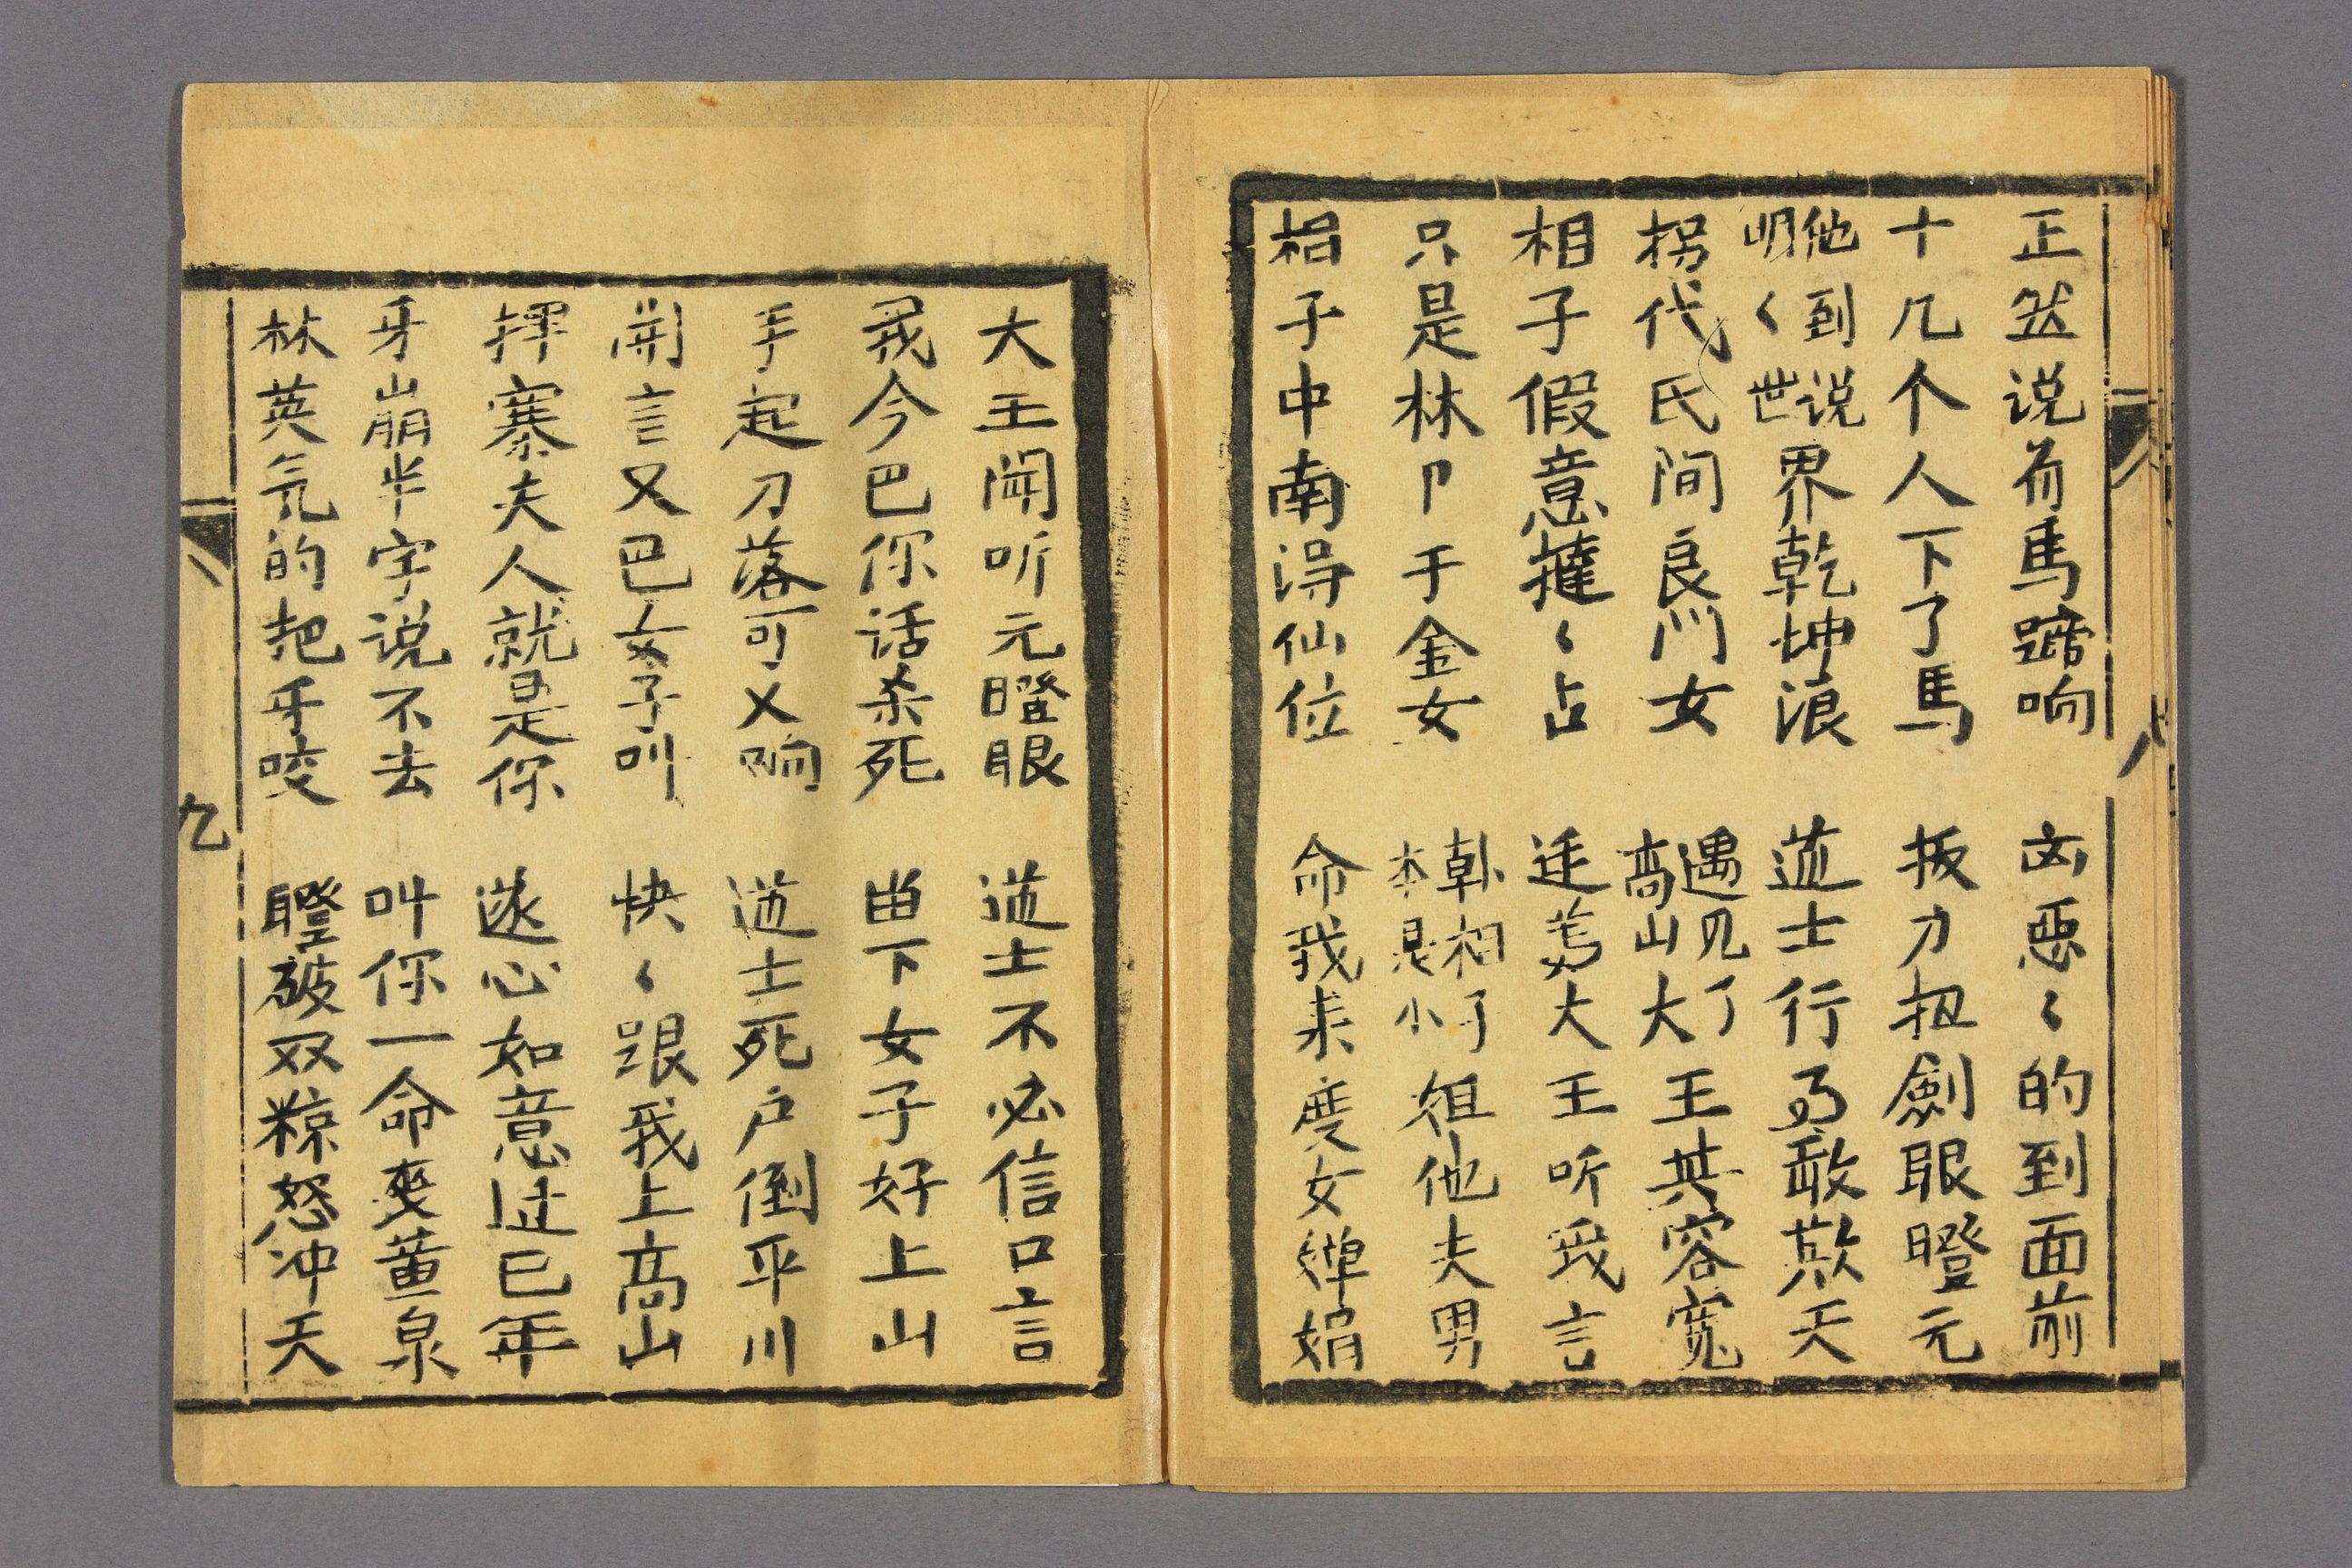 正然说着馬蹄响 凶恶〻的到面前
十几个人下了馬 拔刀扭劍眼瞪元
他到说明〻世界乾坤浪 道士行乃敢欺天
拐代民间良门女 遇见了高山大王其容寬
相子假意撻〻占 连善大王听我言
只是林卩于金女 韩相子本是小徂他夫男
相子中南得仙位 命我来度女婵娟
八
大王闻听元瞪眼 道士不必信口言
我今巴你话杀死 留下女子好上山
手起刀落可乂响 道士死户倒平川
開言又巴女子叫 快〻跟我上高山
押寨夫人就是你 遂心如意过巳年
牙崩半字说不去 叫你一命变黄泉
林英气的把牙咬 瞪破双粽怒冲天
九